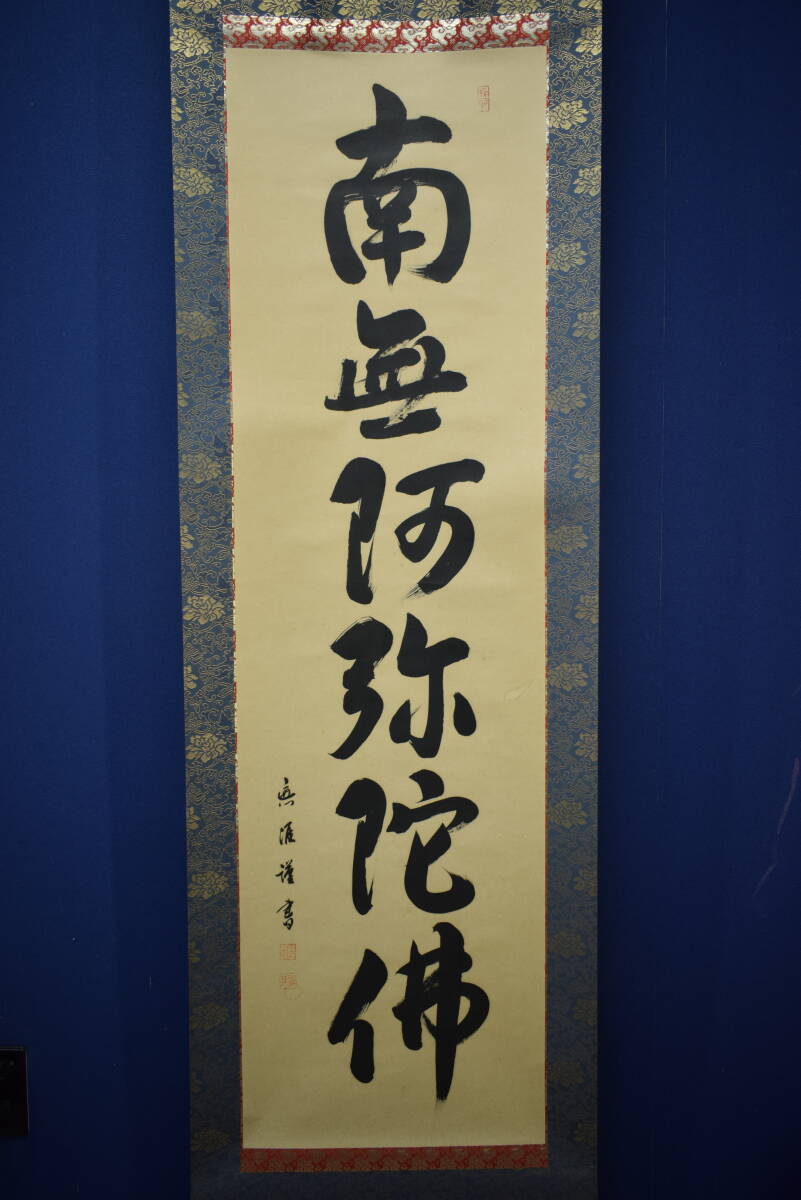 南無阿弥陀佛
無涯謹書